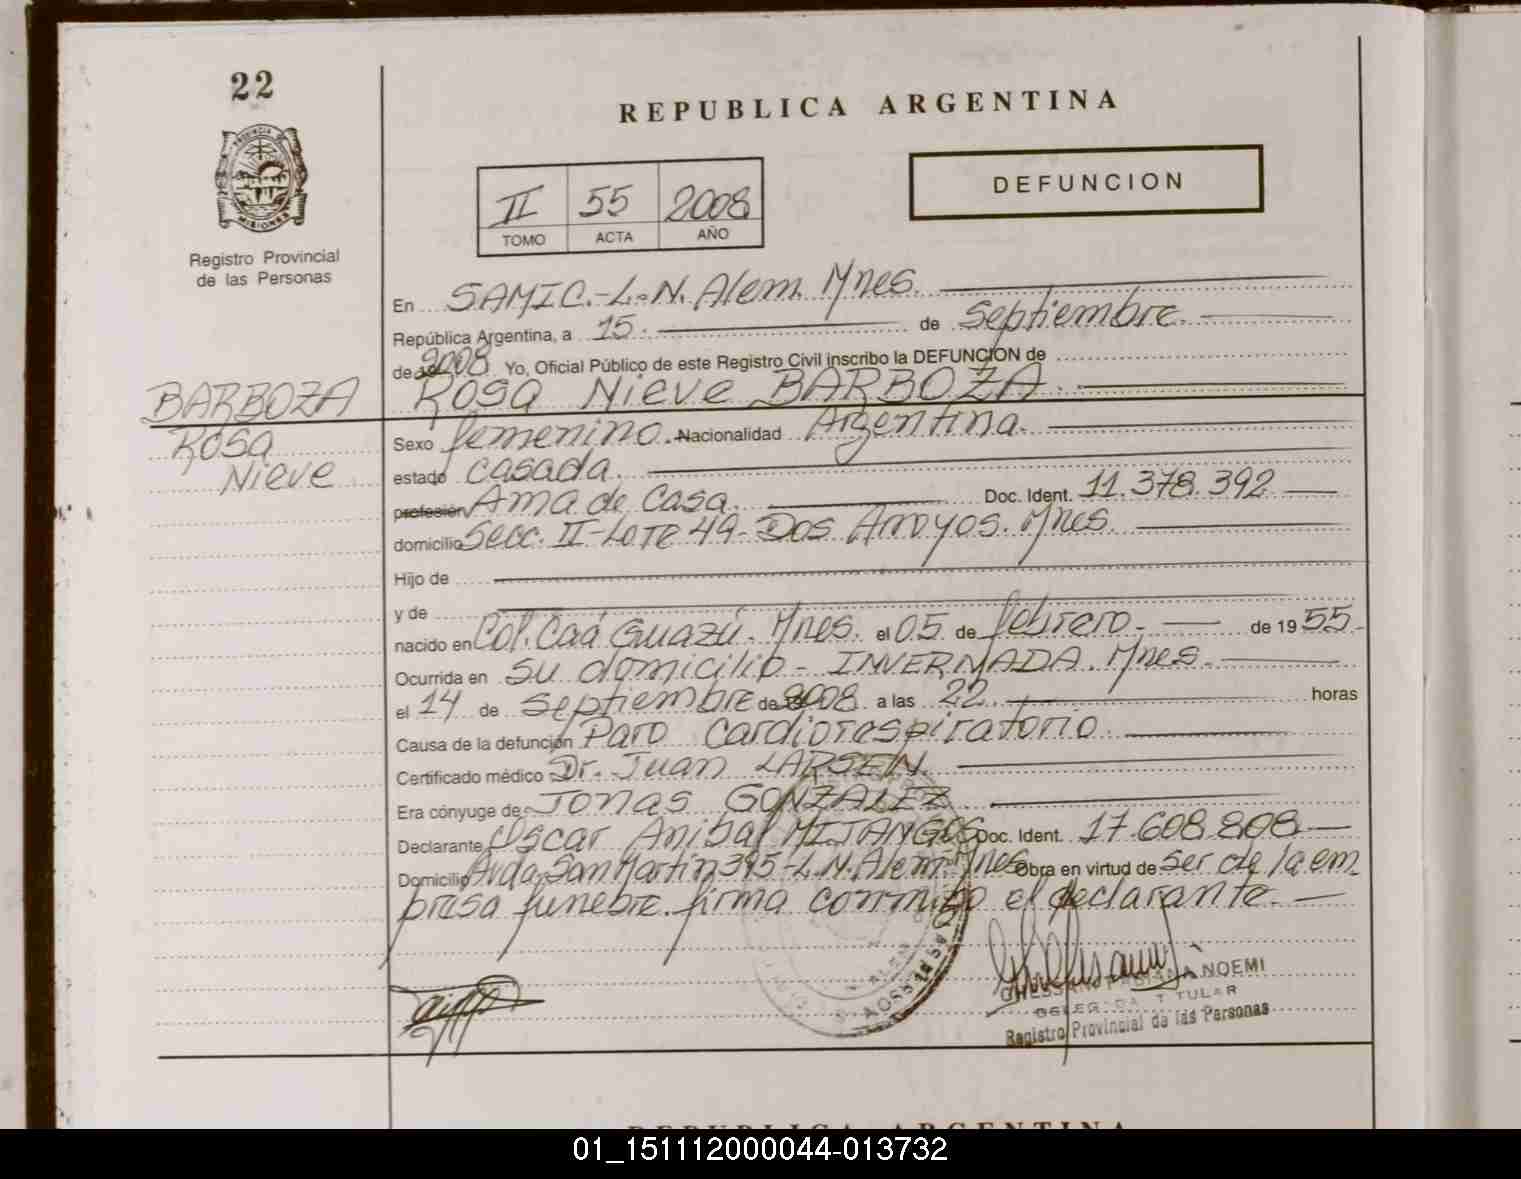 22
REPUBLICA ARGENTINA
DEFUNCION
II 55 2008
TOMO ACTA AÑO
PROVINCIA DE
MISIONES
Registro Provincial
de las Personas
En SAMIC.-L.N. Alem. Mnes.
República Argentina, a 15. de Septiembre.
de 2008 Yo, Oficial Público de este Registro Civil inscribo la DEFUNCION de
BARBOZA Rosa Nieve BARBOZA.
Rosa
Nieve
Sexo femenino. Nacionalidad Argentina.
estado casada.
profesión Ama de Casa. Doc. Ident. 11.378.392
domicilio Secc. II-Lote 49-Dos Arroyos. Mnes.
Hijo de
y de
nacido en Col. Caá Guazú. Mnes. el 05 de febrero. de 1955.
Ocurrida en su domicilio - INVERNADA. Mnes.
el 14 de Septiembre de 2008 a las 22. horas
Causa de la defunción Paro Cardiorespiratorio.
Certificado médico Dr. Juan LARSEN.
Era cónyuge de Jonas GONZALEZ
Declarante Oscar Anibal MITANGOS Doc. Ident. 17.608.808
Domicilio Avda. San Martin 395-L.N. Alem. Mnes Obra en virtud de ser de la em
presa funebre. firma conmigo el declarante.
NOEMI
DELEGADA TITULAR
Registro Provincial de las Personas
REPUBLICA ARGENTINA
01_151112000044-013732